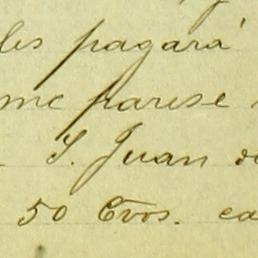 les pagará
me parese
S. Juan de
50 Cvos. ca